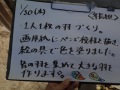 1/30(木)
1人1枚の羽づくり。
画用紙にペンで模様と描き
絵の具で色を塗りました。
皆の羽を集めて大きな羽を
作ります。